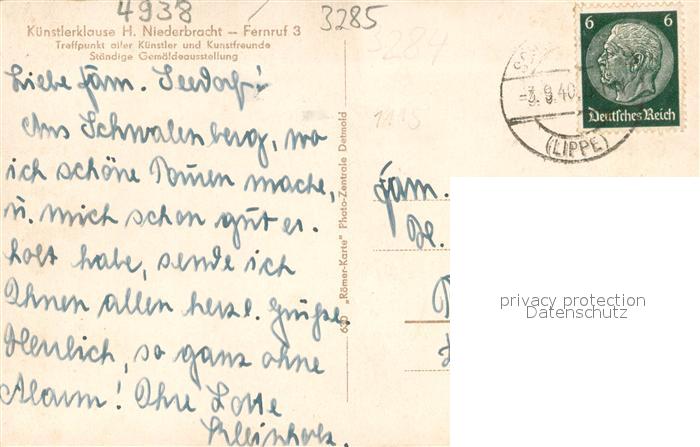 4938
3285
3284
1115
Künstlerklause H. Niederbracht — Fernruf 3
Treffpunkt aller Künstler und Kunstfreunde
Ständige Gemäldeausstellung
Liebe Fam. Seedorf!
Aus Schwalenberg, wo
ich schöne Touren mache,
u. mich schon gut er.
holt habe, sende ich
Ihnen allen herzl. Grüße.
Herrlich, so ganz ohne
Alarm! Ihre Lotte
Kleinholz.
"Römer-Karte" Photo-Zentrale Detmold
6
6
Deutsches Reich
-3.9.40.
(LIPPE)
Fam.
privacy protection
Datenschutz